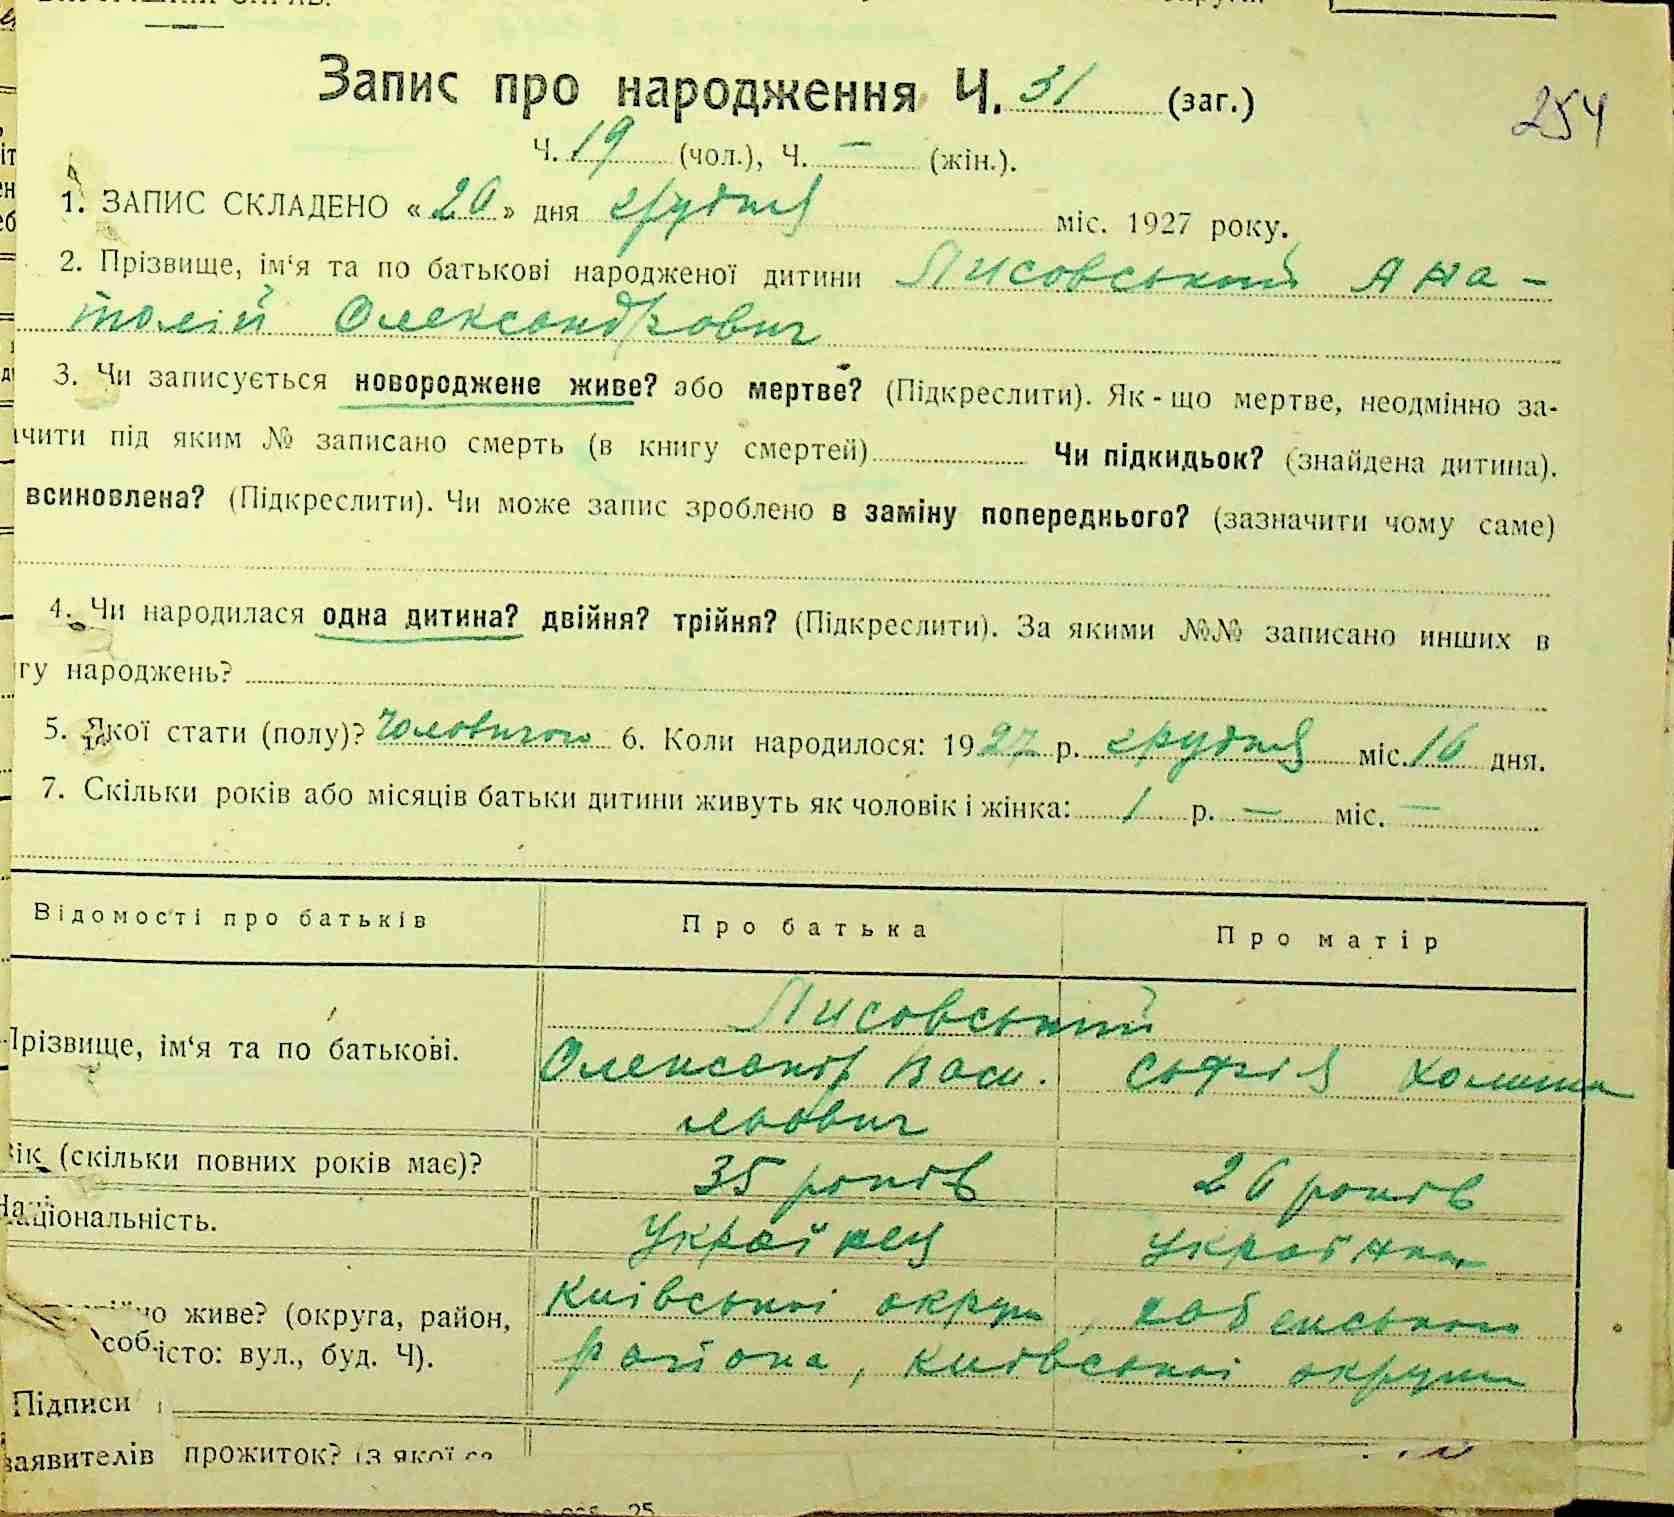 Запис про народження Ч. 31 (заг.)
254
Ч. 19 (чол.), Ч. — (жін.).
1. ЗАПИС СКЛАДЕНО « 20 » дня грудня міс. 1927 року.
2. Прізвище, ім‘я та по батькові народженої дитини Лисовський Ана-
толій Олександрович
3. Чи записується новороджене живе? або мертве? (Підкреслити). Як-що мертве, неодмінно за-
чити під яким № записано смерть (в книгу смертей) Чи підкидьок? (знайдена дитина).
всиновлена? (Підкреслити). Чи може запис зроблено в заміну попереднього? (зазначити чому саме)
4. Чи народилася одна дитина? двійня? трійня? (Підкреслити). За якими №№ записано инших в
гу народжень?
5. Якої стати (полу)? Чоловичого 6. Коли народилося: 1927 р. грудня міс. 16 дня.
7. Скільки років або місяців батьки дитини живуть як чоловік і жінка: 1 р. — міс. —
Відомості про батьків Про батька Про матір
Лисовський
Прізвище, ім‘я та по батькові. Олександр Васи- Софія
льович
Вік (скільки повних років має)? 35 років 26 років
Національність. Українець Українка
но живе? (округа, район, Київської округи,
істо: вул., буд. Ч). района, Київської округи
Підписи
заявителів прожиток? (з якої
25